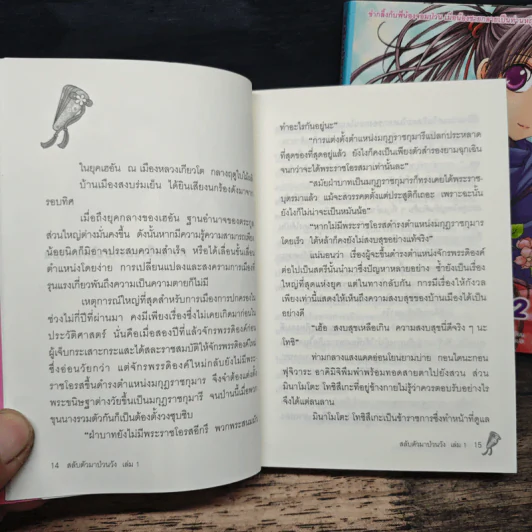 ในยุคเฮอัน ณ เมืองหลวงเกียวโต กลางฤดูใบไม้
บ้านเมืองสงบร่มเย็น ได้ยินเสียงนกร้องดังมาจาก
รอบทิศ
เมื่อถึงยุคกลางของเฮอัน ฐานอำนาจของตระกูล
ส่วนใหญ่ต่างมั่นคงขึ้น ดังนั้นหากมีความรู้ความสามารถเพียง
น้อยนิดก็มิอาจประสบความสำเร็จ หรือได้เลื่อนชั้นเลื่อน
ตำแหน่งโดยง่าย การเปลี่ยนแปลงและสงครามการเมือง
รุนแรงเกี่ยวพันถึงความเป็นความตายก็ไม่มี
เหตุการณ์ใหญ่ที่สุดสำหรับการเมืองการปกครองใน
ช่วงไม่กี่ปีที่ผ่านมา คงมีเพียงเรื่องซึ่งไม่เคยเกิดมาก่อนใน
ประวัติศาสตร์ นั่นคือเมื่อสองปีที่แล้วจักรพรรดิองค์ก่อน
ผู้เจ็บกระเสาะกระแสะได้สละราชสมบัติให้จักรพรรดิใหม่
ซึ่งอ่อนวัยกว่า แต่จักรพรรดิองค์ใหม่กลับยังไม่มีพระ
ราชโอรสขึ้นดำรงตำแหน่งมกุฎราชกุมาร จึงจำต้องแต่งตั้ง
พระขนิษฐาต่างวัยขึ้นเป็นมกุฎราชกุมารี จนป่านนี้เมื่อพวก
ขุนนางรวมตัวกันก็เป็นต้องตั้งวงซุบซิบ
"ฝ่าบาทยังไม่มีพระราชโอรสอีกรึ พวกพระสนม
14 สลับตัวมาป่วนวัง เล่ม 1
ทำอะไรกันอยู่นะ"
"การแต่งตั้งตำแหน่งมกุฎราชกุมารีแปลกประหลาด
ที่สุดของที่สุดอยู่แล้ว ยังไงก็คงเป็นเพียงตัวสำรองยามฉุกเฉิน
จนกว่าจะได้พระราชโอรสมาเท่านั้นละ"
"สมัยฝ่าบาทเป็นมกุฎราชกุมารก็ทรงเคยได้พระราช-
บุตรมาแล้ว แม้จะสวรรคตตั้งแต่ประสูติก็เถอะ เพราะฉะนั้น
ยังไงก็ไม่น่าจะเป็นหมันน้อ"
"หากไม่มีพระราชโอรสดำรงตำแหน่งมกุฎราชกุมาร
โดยเร็ว ใต้หล้าก็คงยังไม่สงบสุขอย่างแท้จริง"
แน่นอนว่า เรื่องผู้จะขึ้นดำรงตำแหน่งจักรพรรดิองค์
ต่อไปเป็นสตรีนั้นนำมาซึ่งปัญหาหลายอย่าง ซ้ำยังเป็นเรื่อง
ใหญ่ที่สุดแห่งยุค แต่ในทางกลับกัน การมีเรื่องให้กังวล
เพียงเท่านี้แสดงให้เห็นถึงความสงบสุขของบ้านเมืองได้เป็นอย่าง
ดี
"เฮ้อ สงบสุขเหลือเกิน ความสงบสุขนี่ดีจริง ๆ นะ
โทชิ"
ท่ามกลางแสงแดดอ่อนโยนยามบ่าย ก่อนใครจะถอน
ฟุจิวาระ อาคิมิจิพึมพำพร้อมทอดสายตาไปยังสวน ส่วน
มินาโมโตะ โทชิสึเกะที่อยู่ข้างกายไม่รู้ว่าควรตอบรับอย่างไร
จึงได้แต่นลาน
มินาโมโตะ โทชิสึเกะเป็นข้าราชการซึ่งทำหน้าที่ดูแล
สลับตัวมาป่วนวัง เล่ม 1 15
2